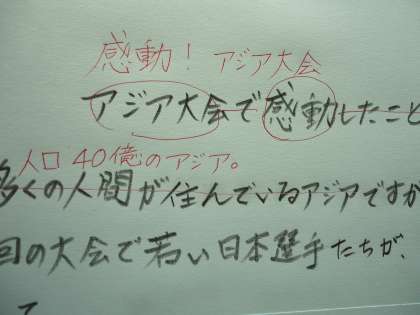 感動！ アジア大会
アジア大会で感動したこと
人口40億のアジア。
多くの人間が住んでいるアジアですが
回の大会で若い日本選手たちが、
て